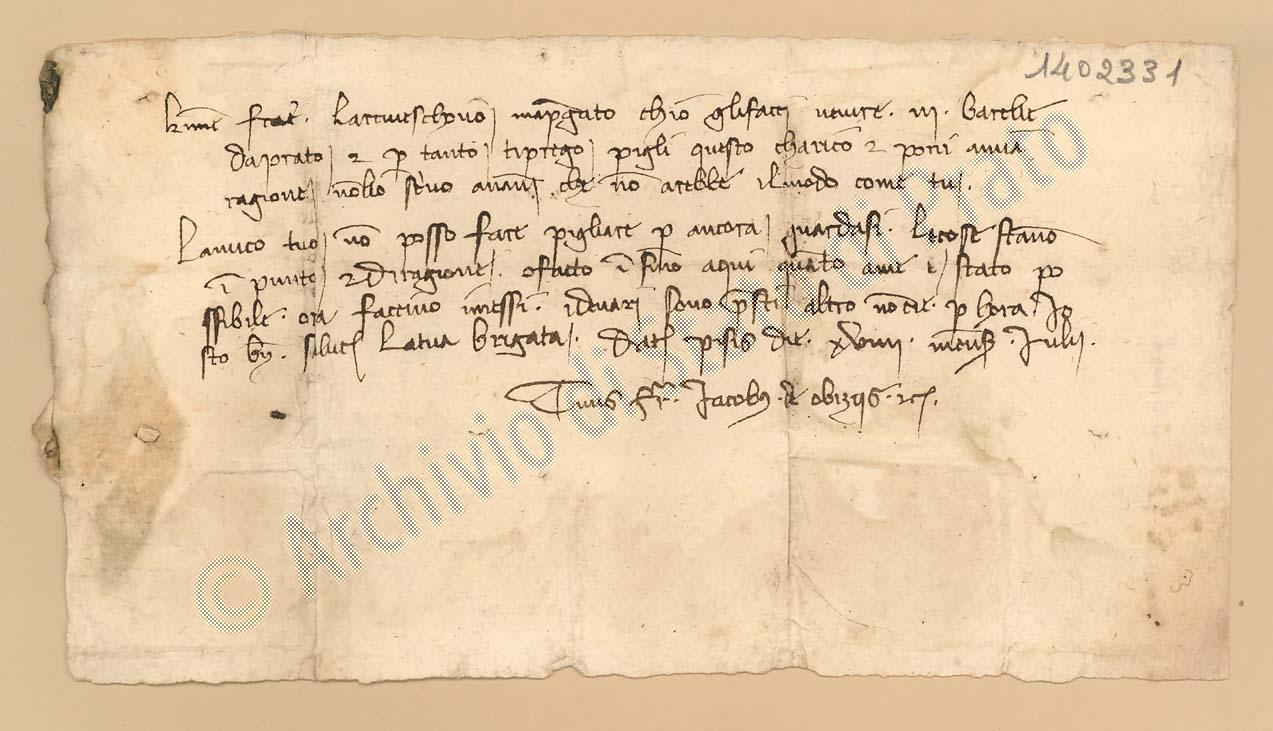 1402331
kme frater. Larciveschovo ma pregato chio gli facci venire. iij. barelle
da prato et per tanto ti prego pigli questo charico et poni a mia
ragione non lo scrivo avanni che non arebbe il modo come tu.
Lamico tuo non posso fare pigliare per ancora guardasi. Le cose stano
in punto et di ragione. o fatto in sino a qui quanto a me e stato po
ssibile. ora faccino i messi. i denari sono presti altro non die. per hora Io
sto ben. saluta La tua brigata. Data pisis die. xviiij. mensis. Iulii.
Tuus fr. Jacobus de obizis. etc.
© Archivio di Stato di Prato